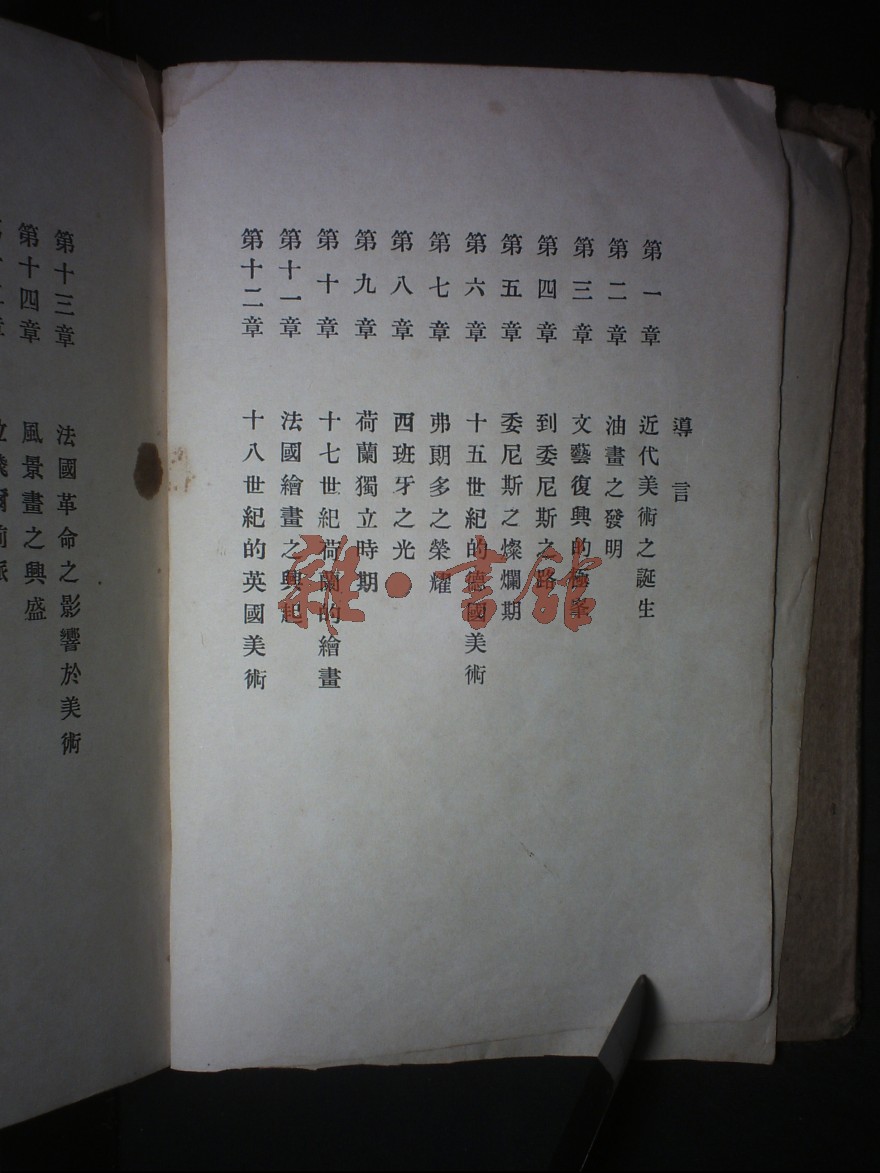 導言
第一章 近代美術之誕生
第二章 油畫之發明
第三章 文藝復興的極峯
第四章 到委尼斯之路
第五章 委尼斯之燦爛期
第六章 十五世紀的德國美術
第七章 弗朗多之榮耀
第八章 西班牙之光
第九章 荷蘭獨立時期
第十章 十七世紀荷蘭的繪畫
第十一章 法國繪畫之興起
第十二章 十八世紀的英國美術
第十三章 法國革命之影響於美術
第十四章 風景畫之興盛
雜·書館